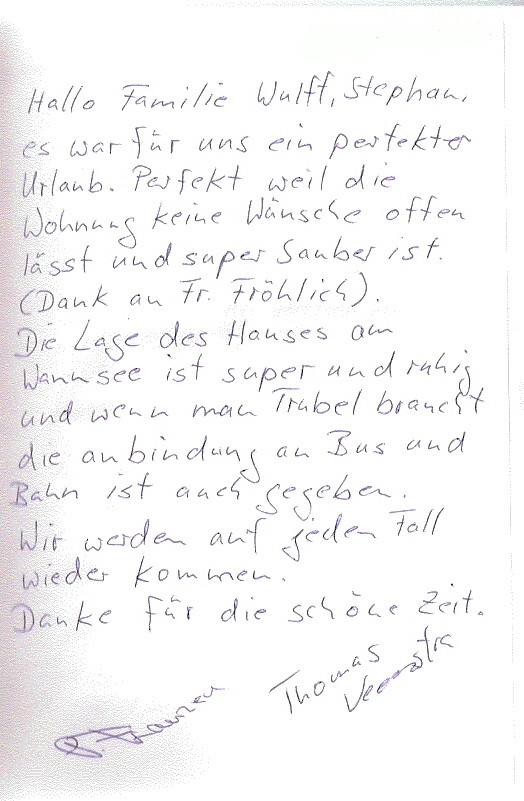 Hallo Familie Wulff, Stephan,
es war für uns ein perfekter
Urlaub. Perfekt weil die
Wohnung keine Wünsche offen
lässt und super Sauber ist.
(Dank an Fr. Fröhlich).
Die Lage des Hauses am
Wannsee ist super und ruhig
und wenn man Trubel braucht
die anbindung an Bus und
Bahn ist auch gegeben.
Wir werden auf jeden Fall
wieder kommen.
Danke für die schöne Zeit.
Thomas